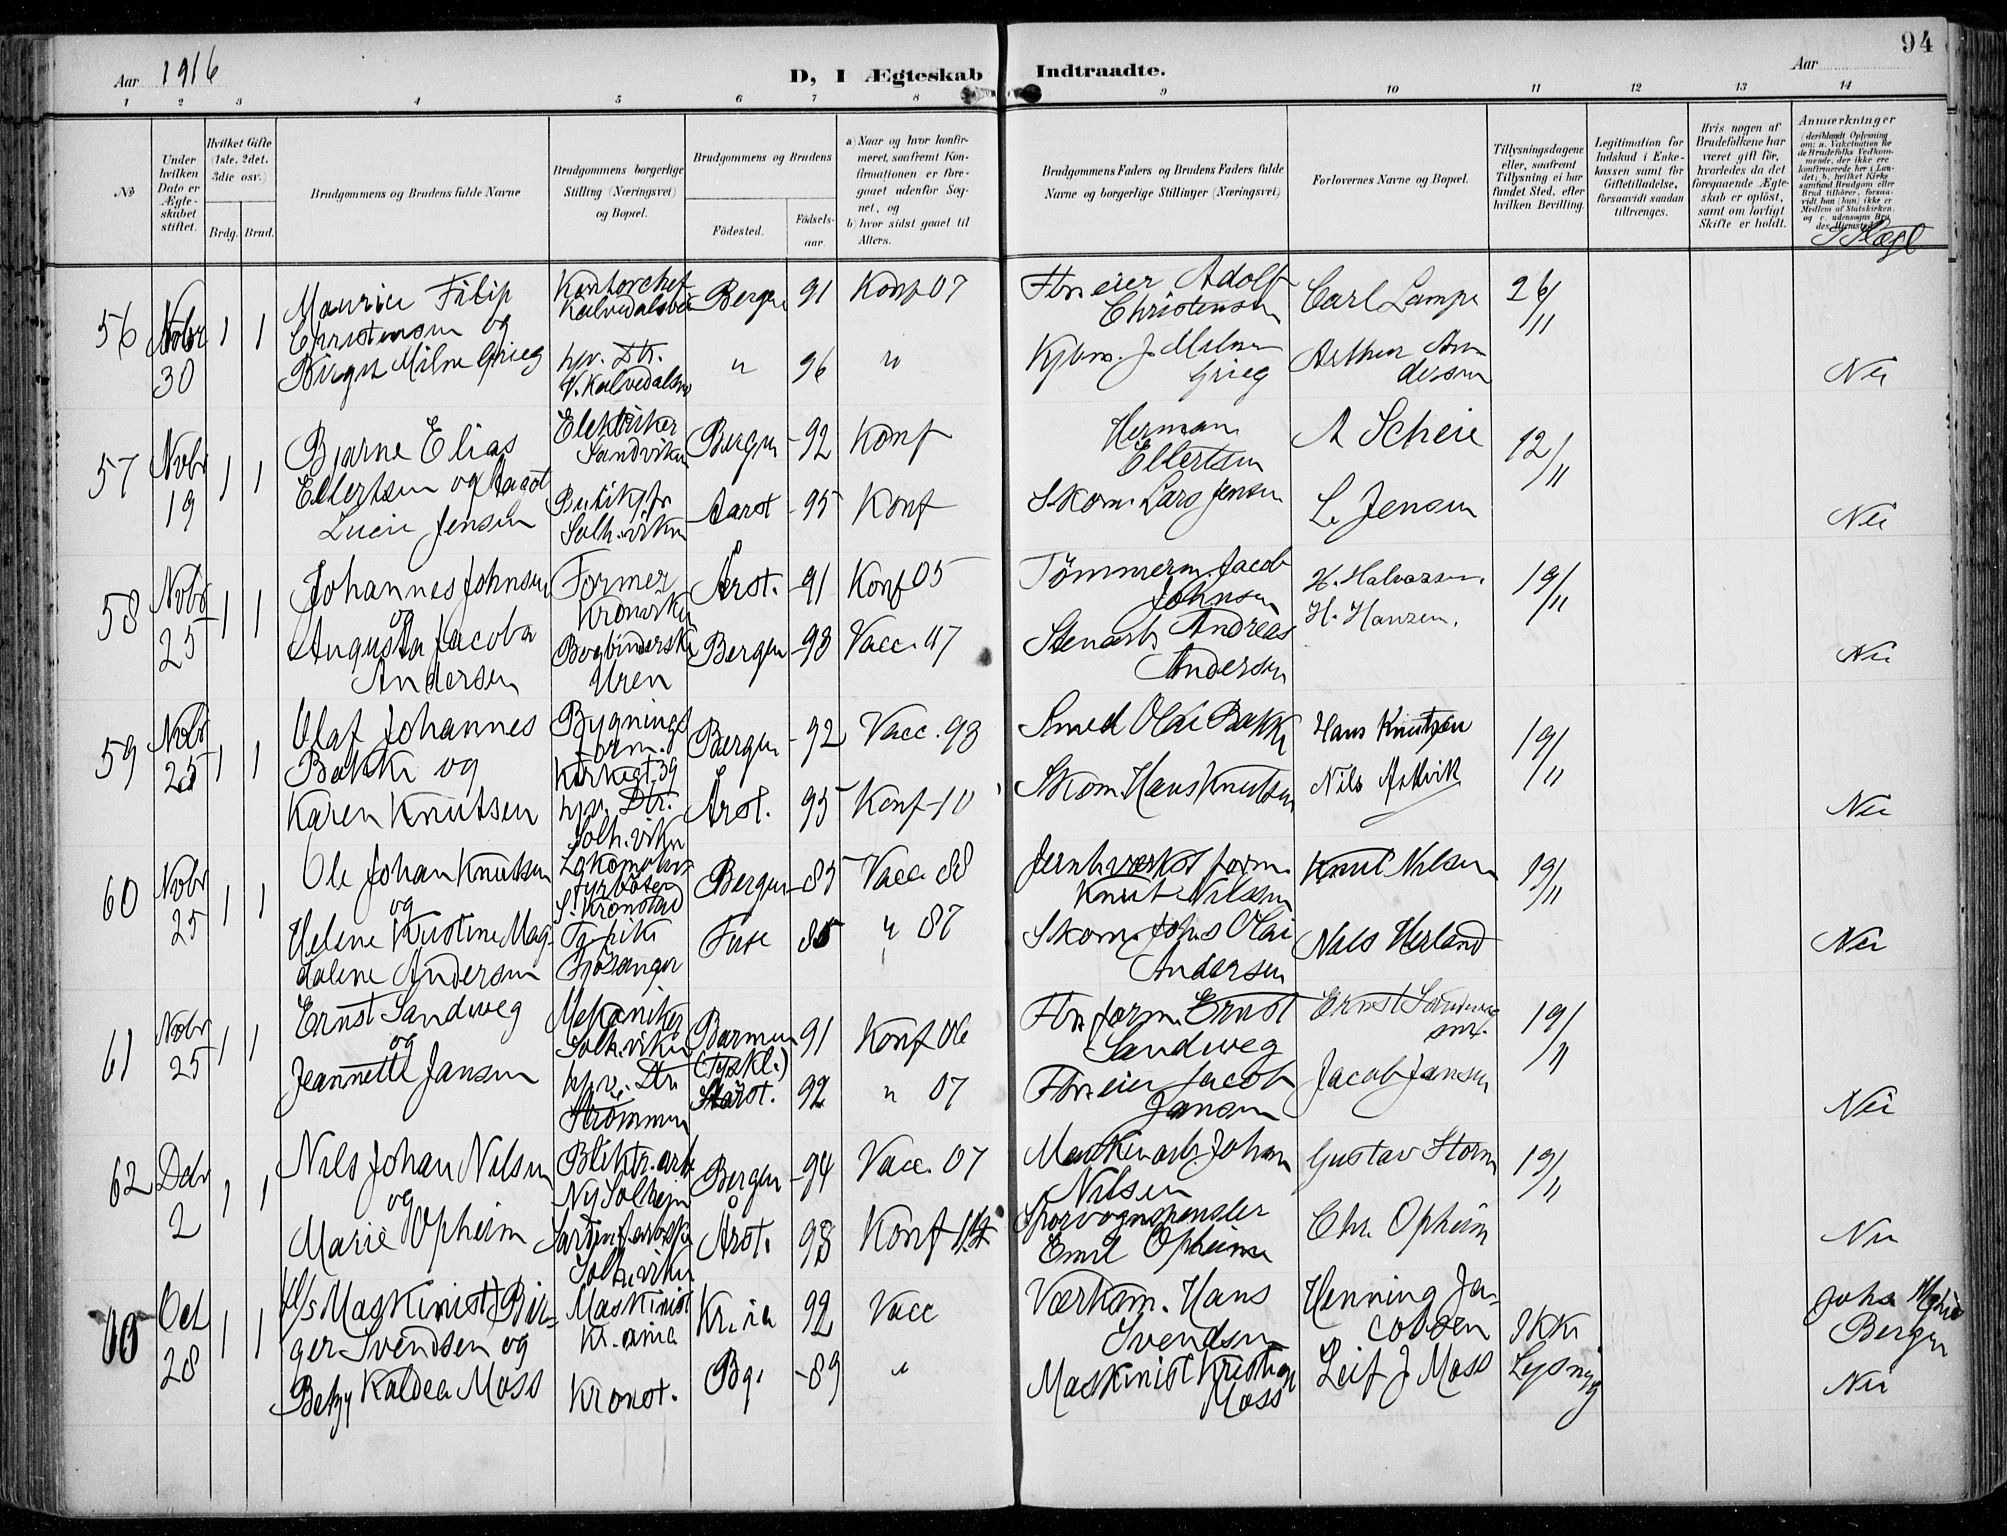 94
Aar 1916
D, I Ægteskab Indtraadte.
Aar
1 2 3 4 5 6 7 8 9 10 11 12 13 14
No
Under hvilken Dato er Ægteskabet stiftet.
Hvilket Gifte (1ste, 2det, 3die osv.)
Brdg. Brud.
Brudgommens og Brudens fulde Navne
Brudgommens borgerlige Stilling (Næringsvei) og Bopæl.
Brudgommens og Brudens
Fødested. Fødselsaar.
a) Naar og hvor konfirmeret, saafremt Konfirmationen er foregaaet udenfor Sognet, og
b) hvor sidst gaaet til Alters.
Brudgommens Faders og Brudens Faders fulde Navne og borgerlige Stillinger (Næringsvei)
Forlovernes Navne og Bopæl.
Tillysningsdagene eller, saafremt Tillysning ei har fundet Sted, efter hvilken Bevilling.
Legitimation for Indskud i Enkekassen samt for Giftetilladelse, forsaavidt saadan tiltrænges.
Hvis nogen af Brudefolkene har været gift før, hvorledes da det foregaaende Ægteskab er opløst, samt om lovligt Skifte er holdt.
Anmærkninger
56 Nobr 30 1 1
Maurice Filip
Christensen og
Birgit Milne Grieg
Kontorchef
Kalvedalsvei
hjv. Dtr.
V. Kalvedalsv
Bergen 91 Konf 07
" 96 "
Fbr. eier Adolf
Christensen
Kjbm. J. Milne
Grieg
Carl Lampe
Arthur An
dersen
26/11
Nei
57 Nobr 19 1 1
Bjarne Elias
Ellertsen og Magot
Lucie Jensen
Elektriker
Sandviken
Butikfr.
Solh.viken
Bergen 92 Konf
Aarst 95 Konf
Herman
Ellertsen
Skom. Lars Jensen
A Scheie
L. Jensen
12/11
Nei
58 Nobr 25 1 1
Johannes Johnsen
og
Augusta Jacoba
Andersen
Former
Kronviken
Bogbinderske
Uren
Årst. 91 Konf 05
Bergen 93 Vacc. 07
Tömmerm. Jacob
Johnsen
Stenarb. Andreas
Andersen
H. Halvorsen.
H. Hansen.
19/11
Nei
59 Nobr 25 1 1
Olaf Johannes
Bakke og
Karen Knutsen
Bygnings
form.
Kirkegt. 39
hjv. Dtr.
Solh.viken
Bergen 92 Vacc. 93
Årst. 95 Konf 10
Smed Olai Bakke
Skom. Hans Knutsen
Hans Knutzen
Nils Astvik
19/11
Nei
60 Nobr 25 1 1
Ole Johan Knutsen
og
Helene Kristine Mag-
dalene Andersen
Lokomotiv
fyrböter
S. Kronstad
Fjösanger
Bergen 85 Vacc 88
Fuse 85 " 87
Jernb.værkst form.
Knut Nilssen
Skom. Johs Olai
Andersen
Knut Nilsen
Nils Herland
19/11
Nei
61 Nobr 25 1 1
Ernst Sandweg
og
Jeannette Jansen
Mekaniker
Solh.viken
hjv. Dtr.
Strömmen
Barmen
(Tyskl.)
Årst.
91 Konf 06
92 " 07
Fbr. form. Ernst
Sandweg
Fbr. eier Jacob
Jansen
Ernst Sandweg
snr.
Jacob Jansen
19/11
Nei
62 Dcbr 2 1 1
Nils Johan Nilsen
og
Marie Opheim
Bliktr. arb
Ny Solhejm
Solh.viken
Bergen 94 Vacc. 07
Årst. 98 Konf
Maskinarb. Johan
Nilsen
Emil Opheim
Gustav Storm
Chr. Opheim
19/11
Nei
Oct 28 1 1
Maskinist) Bir-
ger Svendsen og
Betzy Kaldea Moss
Maskinist
Kr.ania
Kronst.
Kr.ia 92 Vacc
Bg. 89 "
Hans
Svendsen
Maskinist Kristian
Moss
Henning Ja-
cobsen
Leif J Moss
Ikke
Lysning
Johs
Bergen
Nei